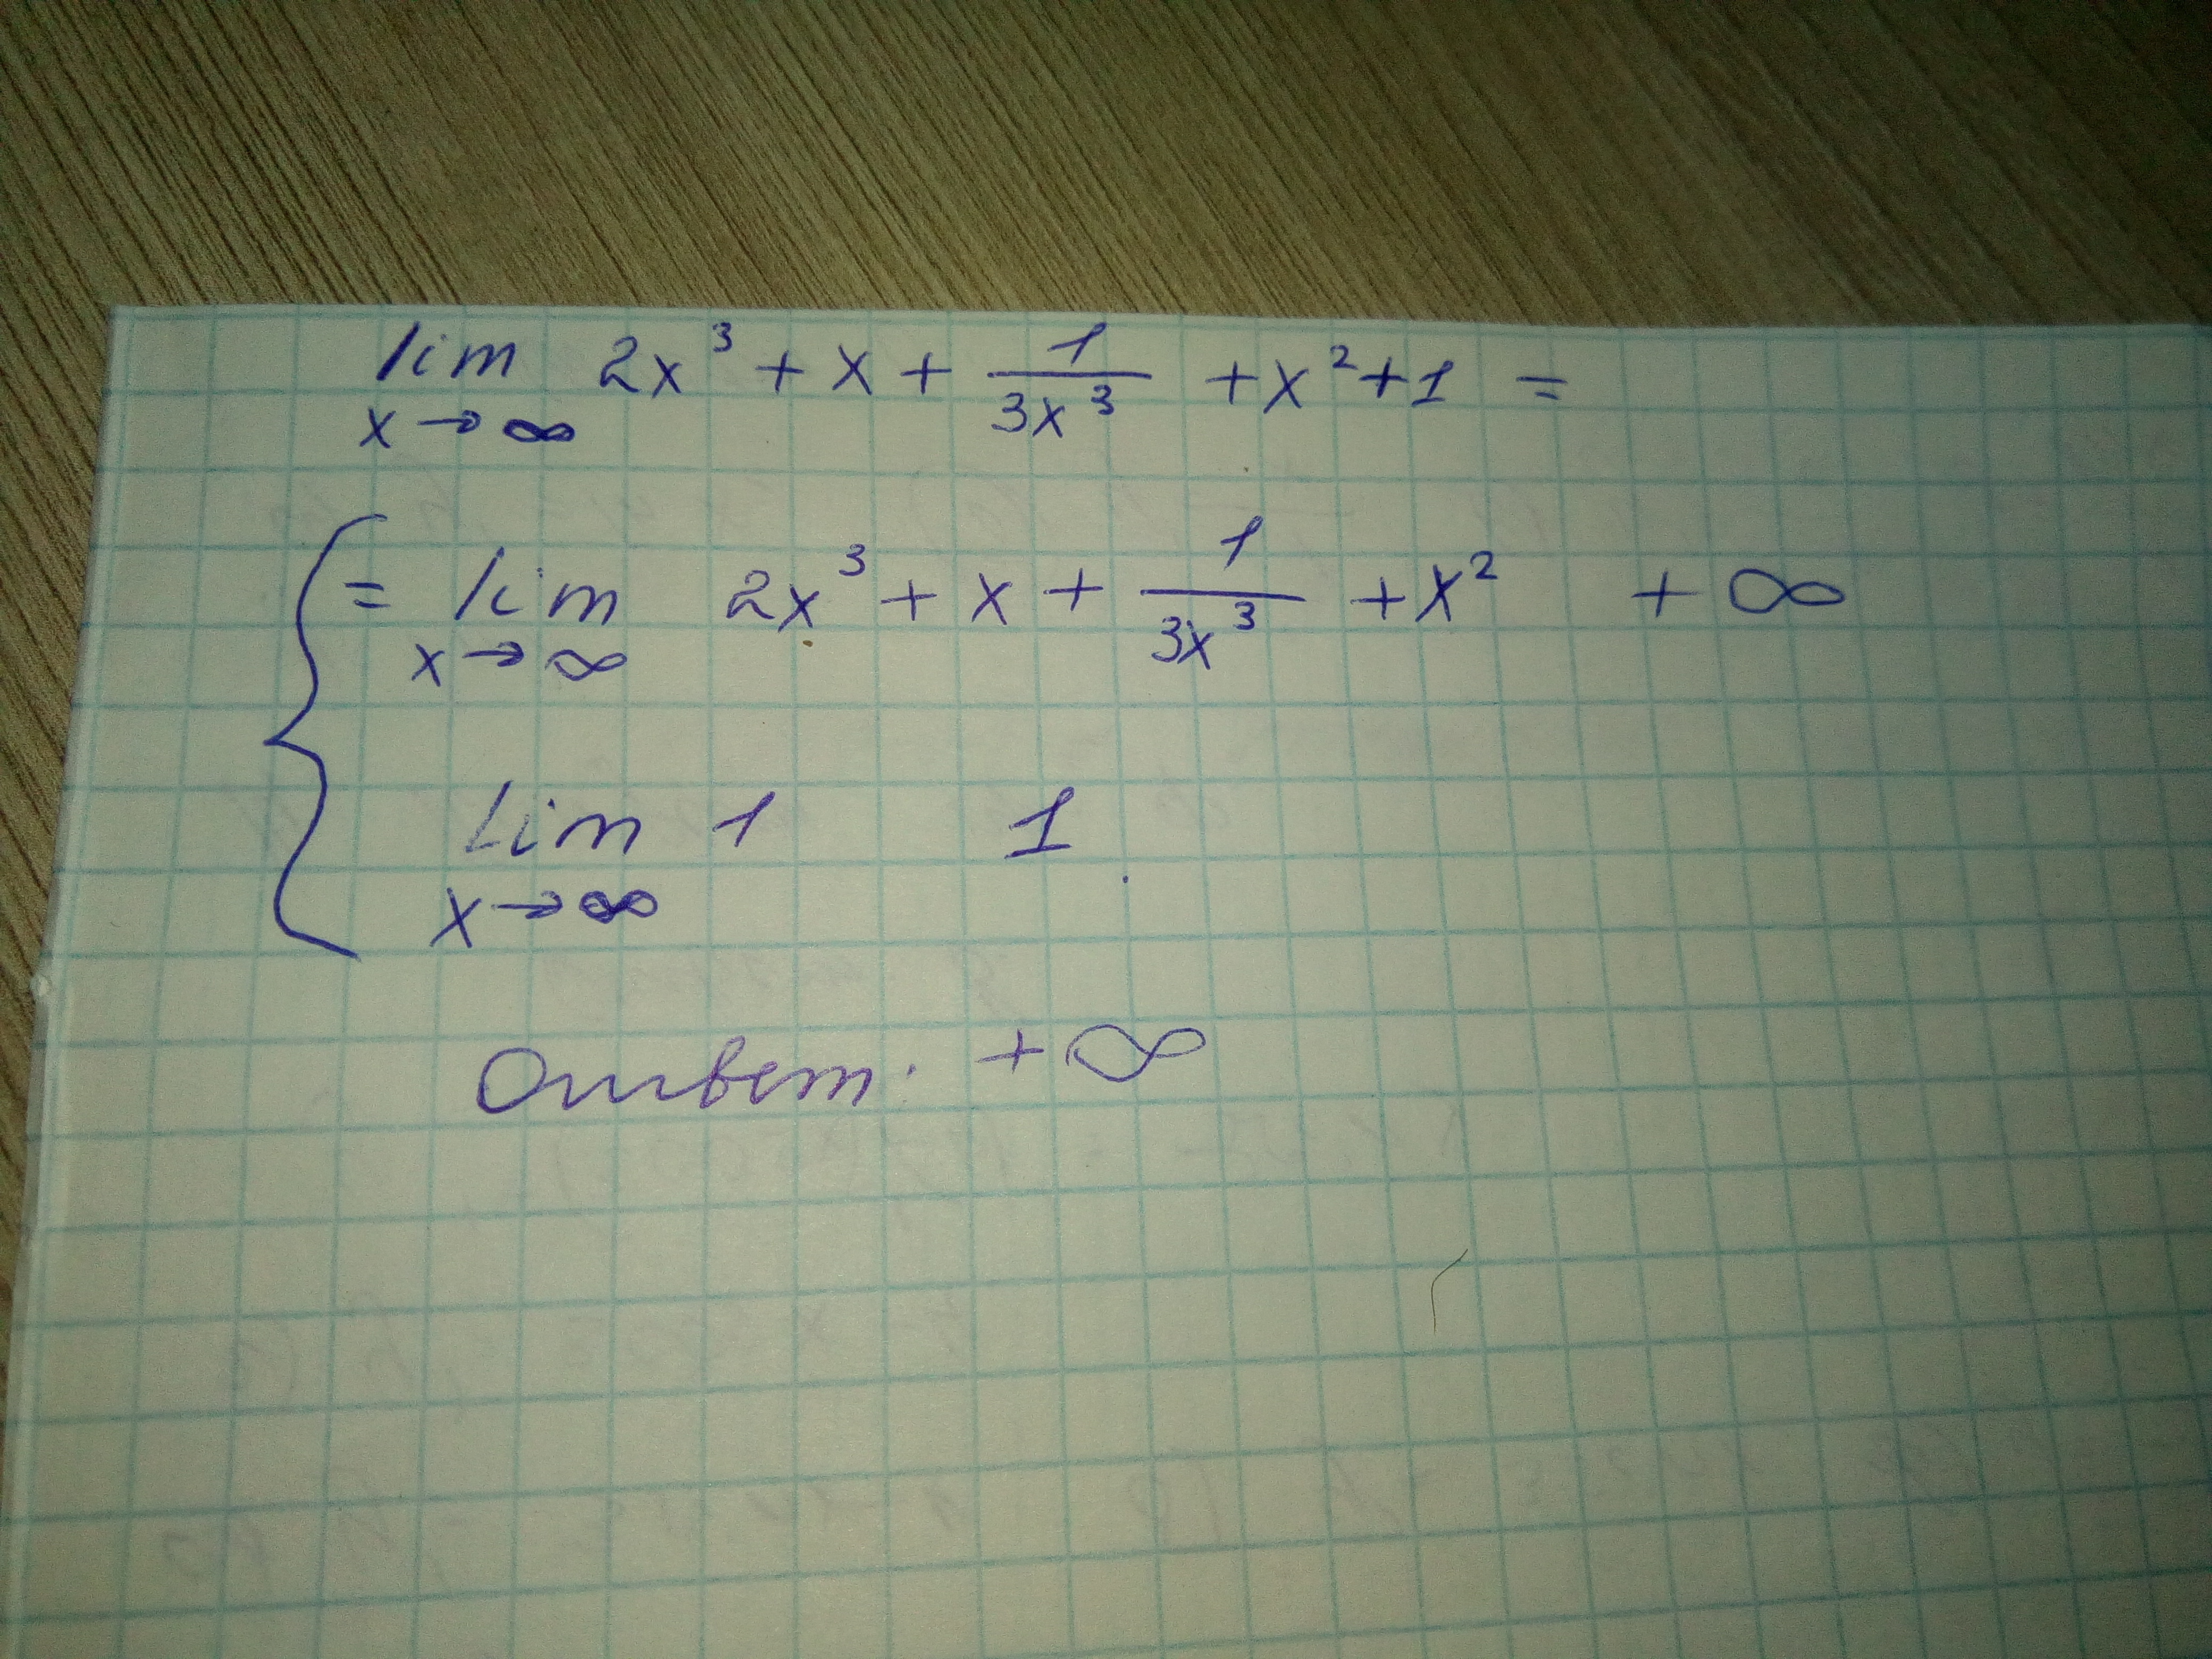 lim 2x³ + x + 1/3x³ + x² + 1 =
x → ∞
= lim 2x³ + x + 1/3x³ + x² + ∞
x → ∞
Lim 1 1
x → ∞
Ответ: +∞